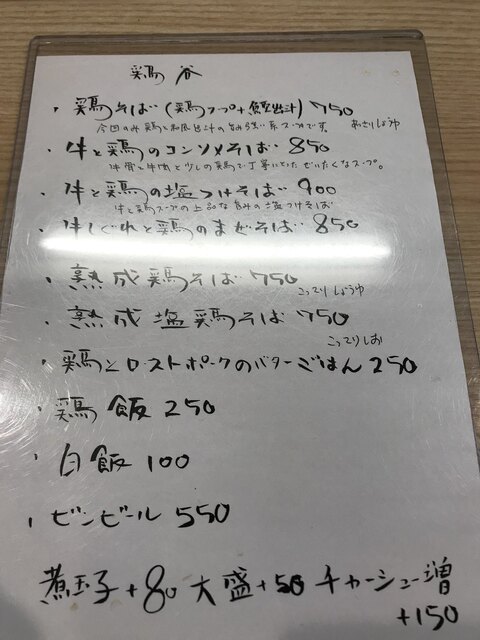 鶏 谷
・鶏そば(鶏スープ+魚介出汁) 750
今回のみ鶏と和風出汁の旨み強い系スープです。 あっさりしょうゆ
・牛と鶏のコンソメそば 850
牛骨と牛肉と少しの鶏で丁寧にとったぜいたくなスープ。
・牛と鶏の塩つけそば 900
牛と鶏スープの上品な旨みの塩つけそば
・牛しぐれと鶏のまぜそば 850
・熟成鶏そば 750
こってりしょうゆ
・熟成塩鶏そば 750
こってりしお
・鶏とローストポークのバターごはん 250
・鶏飯 250
・白飯 100
・ビンビール 550
煮玉子+80 大盛+50 チャーシュー増
+150